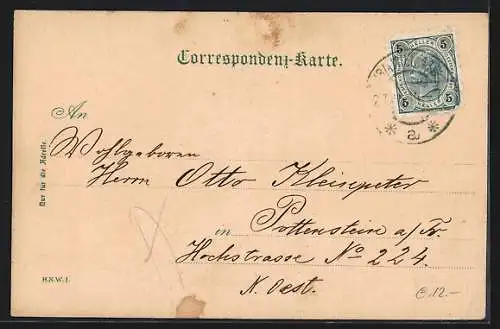 Correspondenz-Karte.
5 5
HELLER
5 5
a
An
Wohlgeboren
Herrn Otto Kleisepeter
in Pottenstein a/Tr.
Hochstrasse No 224.
N. Oest.
Nur für die Adresse.
H.N.W.I.
€ 12.–